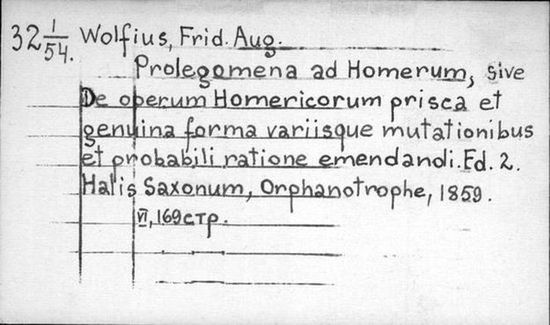 32 1/54. Wolfius, Frid. Aug.
Prolegomena ad Homerum, sive
De operum Homericorum prisca et
genuina forma variisque mutationibus
et probabili ratione emendandi. Ed. 2.
Halis Saxonum, Orphanotrophe, 1859.
VI, 169 стр.